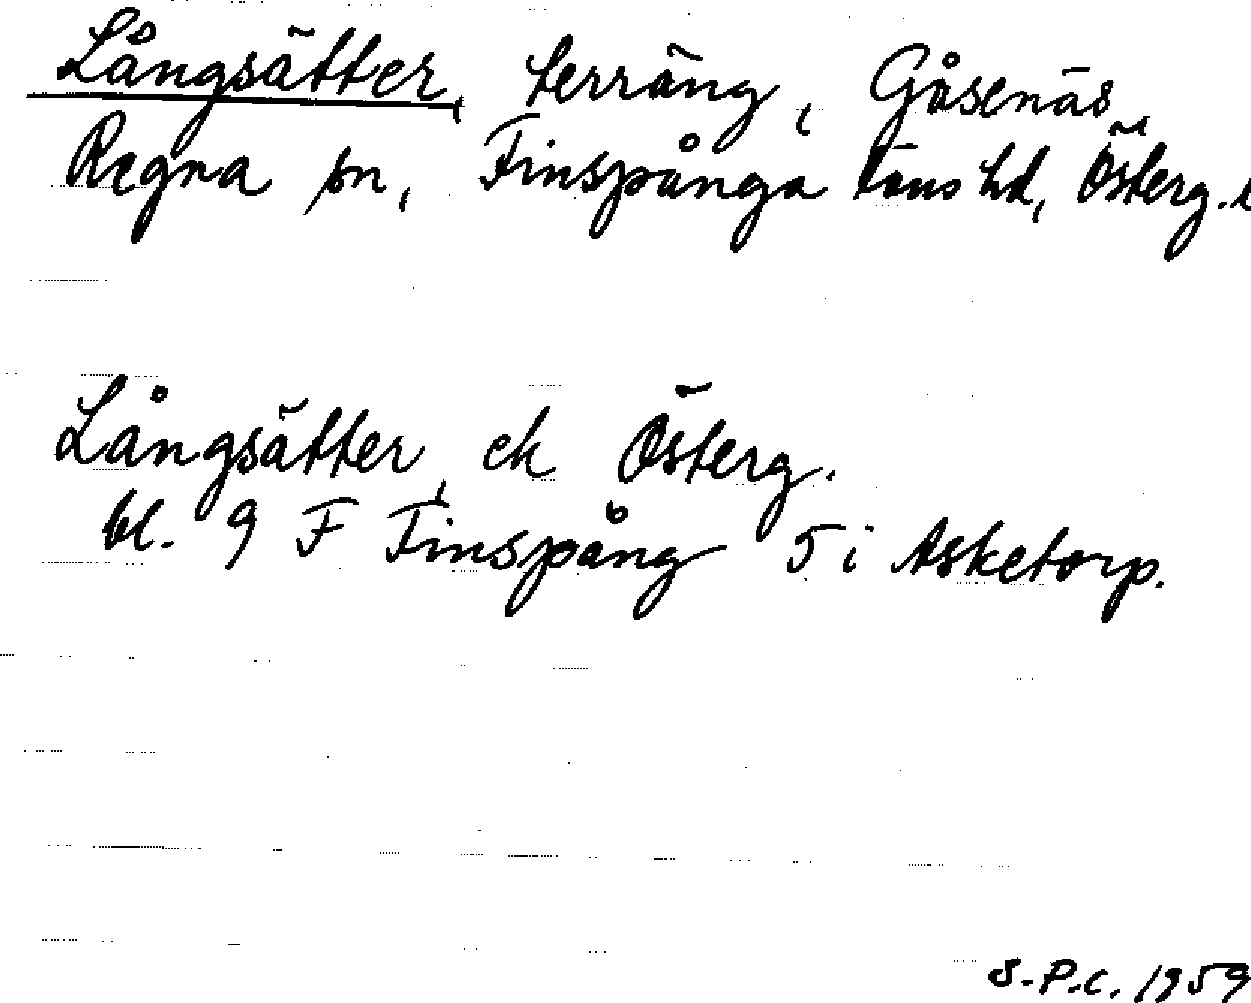 Långsätter, terräng, Gåsenäs,
Regna sn, Finspånga läns hd, Österg. l
Långsätter, ek Österg.
bl. 9 F Finspång 5 i Asketorp.
S.P.C. 1959